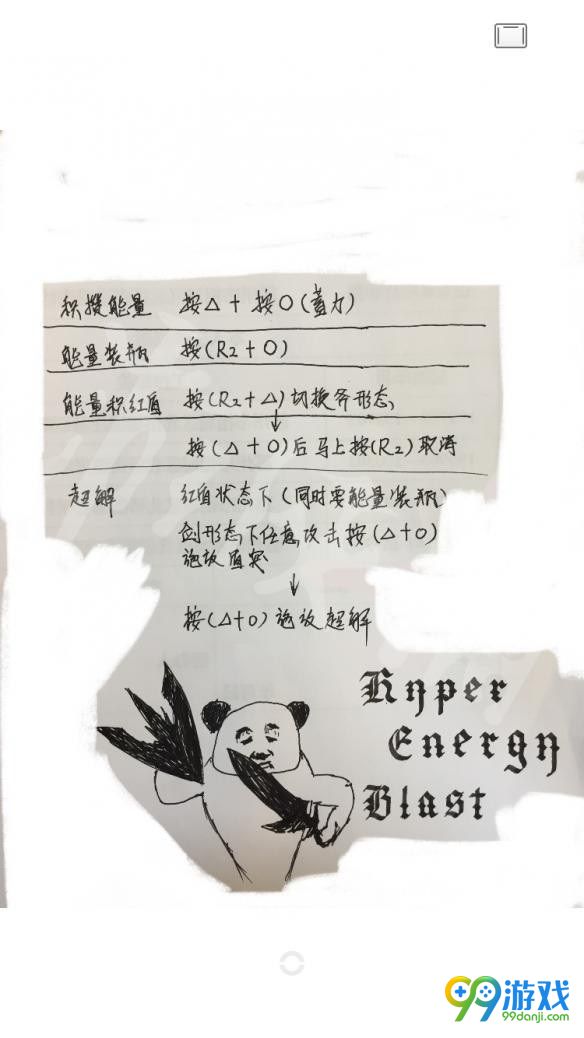 积攒能量 按△ + 按O(蓄力)
能量装瓶 按(R2 + O)
能量积红盾 按(R2 + △)切换斧形态
↓
按(△ + O)后马上按(R2)取消
超解 红盾状态下(同时要能量装瓶)
剑形态下任意攻击按(△+O)
施放盾突
↓
按(△+O)施放超解
Hyper
Energy
Blast
99游戏
99danji.com